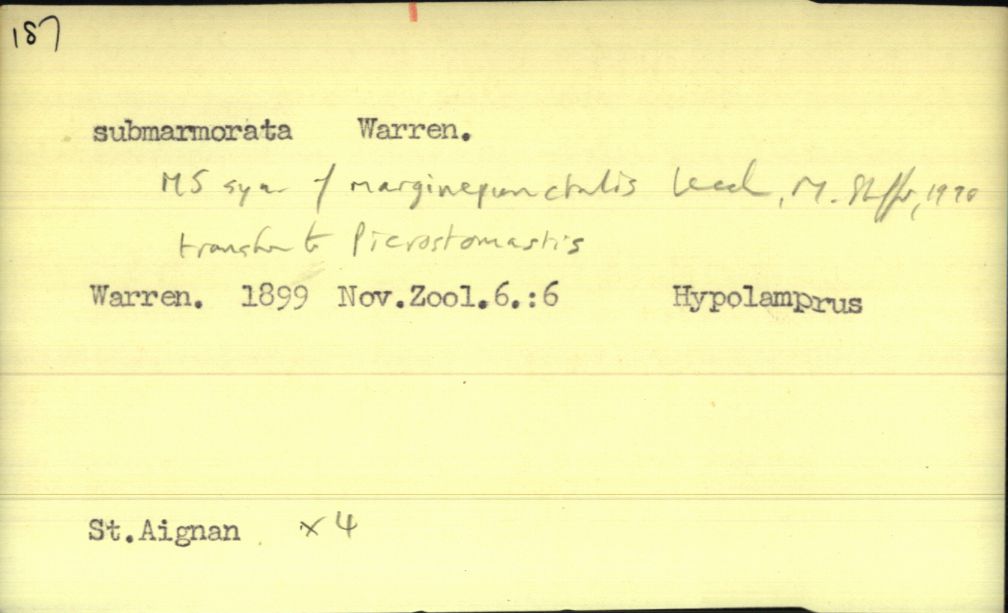 187
submarmorata Warren.
MS syn of marginepunctalis Leech, M. Shaffer, 1970
transfer to Picrostomastis
Warren. 1899 Nov.Zool.6.:6 Hypolamprus
St.Aignan x 4